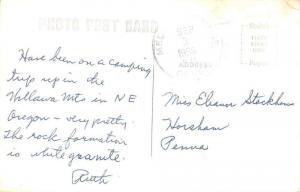 PHOTO POST CARD
SEP
Have been on a camping
trip up in the
Wallowa Mts in NE
Oregon - very pretty.
The rock formation
is white granite.
Ruth
Miss Eleanor Stackhouse
Horsham
Penna